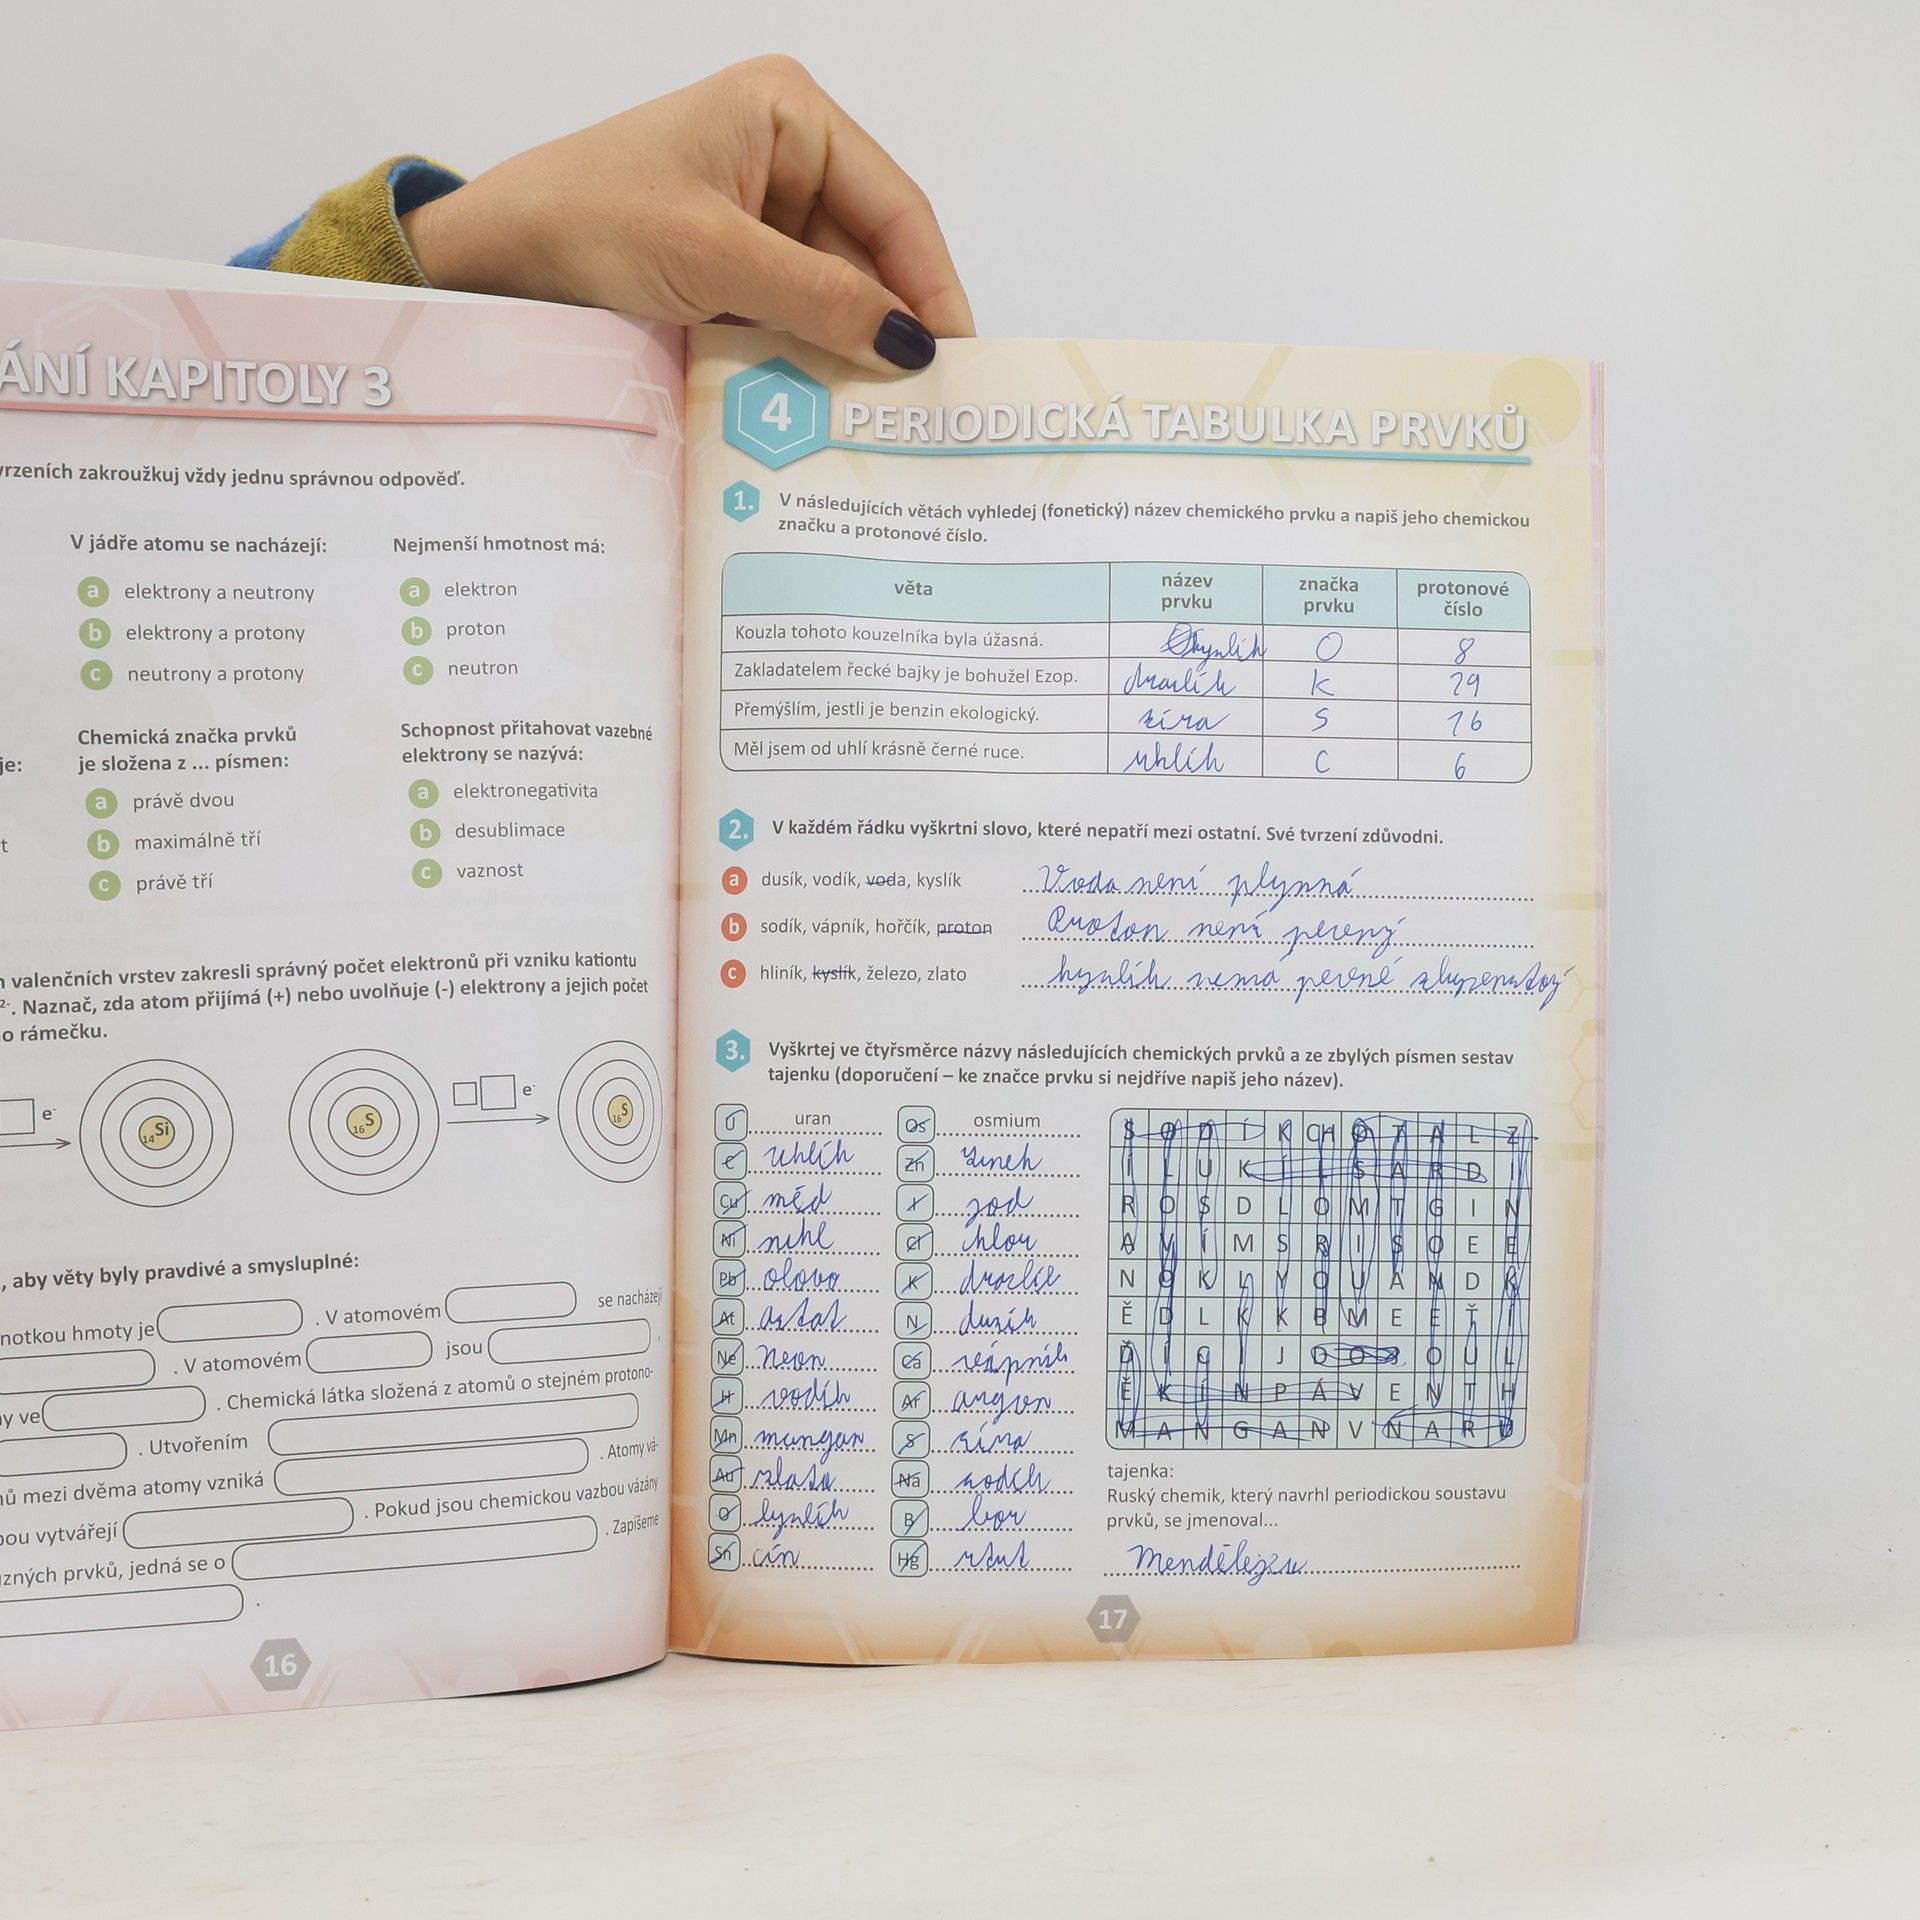 ÁNÍ KAPITOLY 3
vrzeních zakroužkuj vždy jednu správnou odpověď.
V jádře atomu se nacházejí:
a elektrony a neutrony
b elektrony a protony
c neutrony a protony
Nejmenší hmotnost má:
a elektron
b proton
c neutron
je:
t
Chemická značka prvků
je složena z ... písmen:
a právě dvou
b maximálně tří
c právě tří
Schopnost přitahovat vazebné
elektrony se nazývá:
a elektronegativita
b desublimace
c vaznost
valenčních vrstev zakresli správný počet elektronů při vzniku kationtu
2-. Naznač, zda atom přijímá (+) nebo uvolňuje (-) elektrony a jejich počet
o rámečku.
e-
14Si
16S
e-
16S
, aby věty byly pravdivé a smysluplné:
notkou hmoty je . V atomovém se nacházejí
. V atomovém jsou ,
ny ve . Chemická látka složená z atomů o stejném protono-
. Utvořením
ů mezi dvěma atomy vzniká . Atomy vá-
bou vytvářejí . Pokud jsou chemickou vazbou vázány
zných prvků, jedná se o . Zapíšeme
.
16
4 PERIODICKÁ TABULKA PRVKŮ
1. V následujících větách vyhledej (fonetický) název chemického prvku a napiš jeho chemickou
značku a protonové číslo.
věta název prvku značka prvku protonové číslo
Kouzla tohoto kouzelníka byla úžasná. kyslík O 8
Zakladatelem řecké bajky je bohužel Ezop. draslík K 19
Přemýšlím, jestli je benzin ekologický. síra S 16
Měl jsem od uhlí krásně černé ruce. uhlík C 6
2. V každém řádku vyškrtni slovo, které nepatří mezi ostatní. Své tvrzení zdůvodni.
a dusík, vodík, voda, kyslík Voda není plynná
b sodík, vápník, hořčík, proton Proton není pevný
c hliník, kyslík, železo, zlato kyslík nemá pevné
3. Vyškrtej ve čtyřsměrce názvy následujících chemických prvků a ze zbylých písmen sestav
tajenku (doporučení – ke značce prvku si nejdříve napiš jeho název).
U uran
C uhlík
Cu měd
Ni nikl
Pb olovo
At astat
Ne Neon
H vodík
Mn mangan
Au zlato
O kyslík
Sn cín
Os osmium
Zn Zinek
I jod
Cl chlor
K draslík
N dusík
Ca vápník
Ar argon
S síra
Na sodík
B bor
Hg rtut
S O D Í K CH O T A L Z
Í L U K Í L S A R D I
R O S D L O M T G I N
A V Í M S R I S O E E
N O K L Y O U A N D K
Ě D L K K B M E E Ť Í
Ď Í C I J D O J O U L
Ě K Í N P Á V E N T H
M A N G A N V N A R U
tajenka:
Ruský chemik, který navrhl periodickou soustavu
prvků, se jmenoval...
17